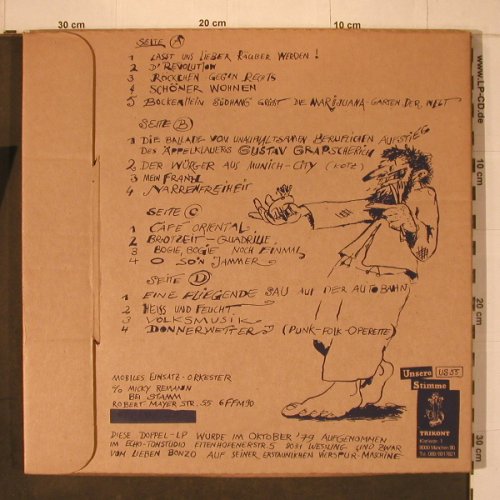 30 cm
20 cm
10 cm
www.LP-CD.de
SEITE A
1 LASST UNS LIEBER RÄUBER WERDEN!
2 D'REVOLUTION
3 ROCKCHEN GEGEN RECHTS
4 SCHÖNER WOHNEN
5 BOCKENHEIM SÜDHANG GRÜSST DIE MARIJUANA-GÄRTEN DER WELT
SEITE B
1 DIE BALLADE VOM UNAUFHALTSAMEN BERUFLICHEN AUFSTIEG
DES ÄPPELKLAUERS GUSTAV GRAPSCHERICH
2 DER WÜRGER AUS MUNICH-CITY (KOTZ)
3 MEIN FRANZL
4 NARRENFREIHEIT
SEITE C
1 CAFÉ ORIENTAL
2 BROTZEIT-QUADRILLE
3 BOGIE, BOGIE NOCH EINMAL
4 O SO'N JAMMER
SEITE D
1 EINE FLIEGENDE SAU AUF DER AUTOBAHN
2 HEISS UND FEUCHT
3 VOLKSMUSIK
4 DONNERWETTER (PUNK-FOLK-OPERETTE)
MOBILES EINSATZ-ORKESTER
c/o MICKY REMANN
BEI STAMM
ROBERT MAYER STR. 55 6 FFM 90
Unsere
Stimme
US 55
TRIKONT
8000 München 90
DIESE DOPPEL-LP WURDE IM OKTOBER '79 AUFGENOMMEN
IM ECHO-TONSTUDIO 8031 WESSLING UND ZWAR
VOM LIEBEN BONZO AUF SEINER ERSTAUNLICHEN VIERSPUR-MASCHINE
30 cm
20 cm
10 cm